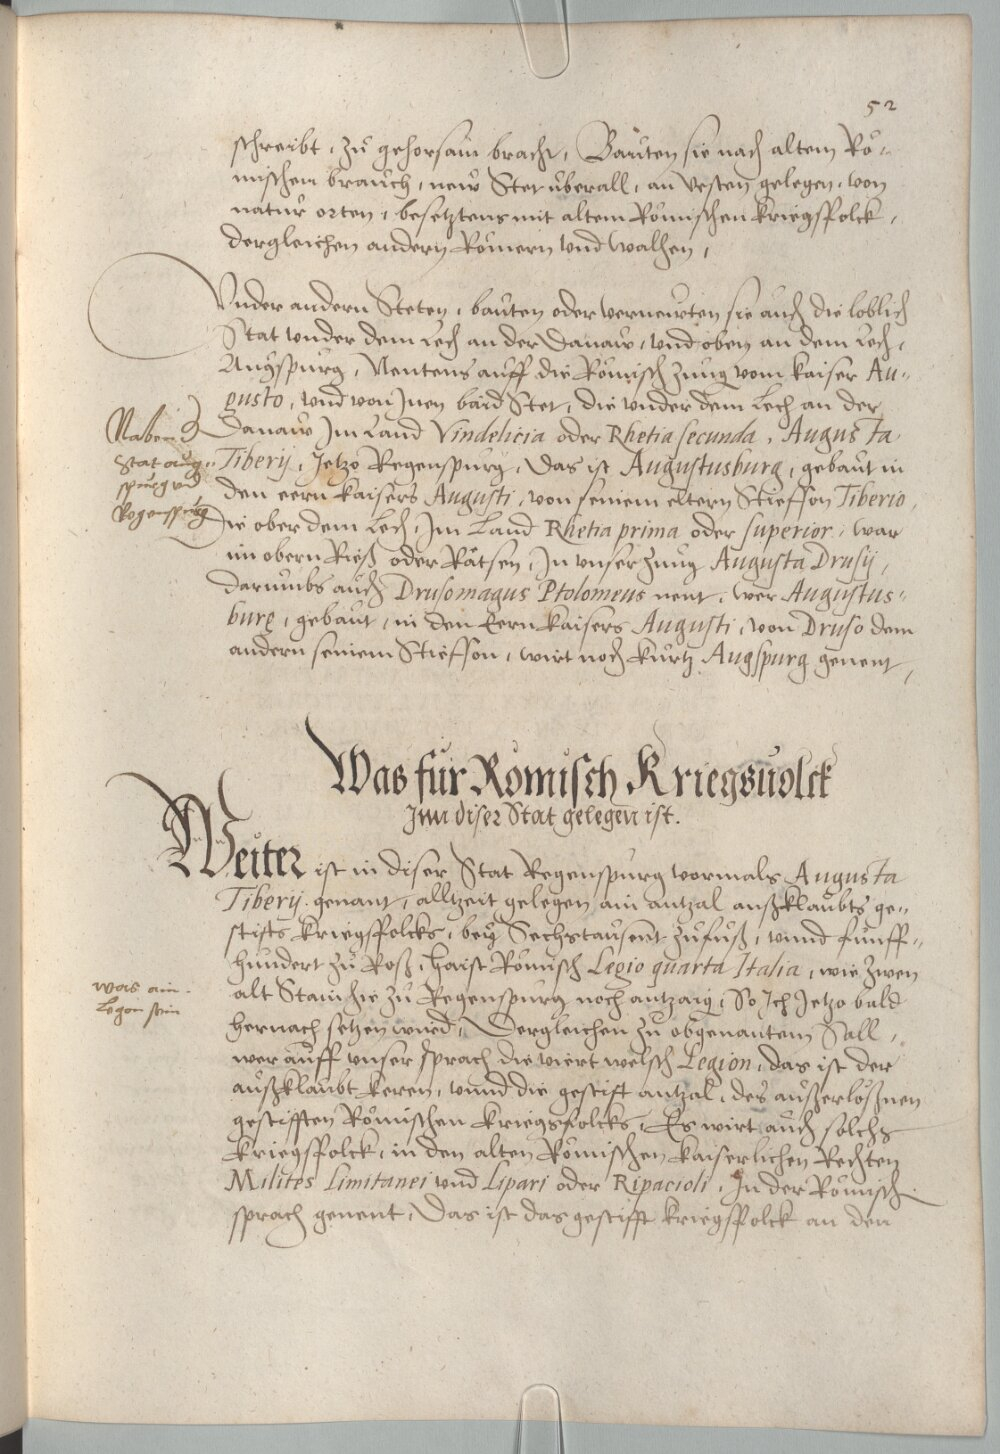 52
schreibt, zů gehorsam bracht, Bauten sie nach altem Rö-
mischem brauch, new Stet überall, an Vesten gelegen, von
natur orten, besetztens mit altem Römischen kriegsfolck,
dergleichen andern Römern vnd walhen,
Vnder andern Steten, bauten oder verneurten sie auch die loblich
Stat vnder dem Lech an der Danaw, vnd oben an dem Lech,
Augspurg, Nentens auff die Römisch zung vom kaiser Au-
gusto, vnd von Jnen baid Stet, die vnder dem Lech an der
Danaw Jm Land Vindelicia oder Rhetia secunda, Augusta
Tiberij, Jetzo Regenspurg, Das ist Augustusburg, gebaut in
den eern kaisers Augusti, von seinem eltern Stieffson Tiberio,
Die ober dem Lech, Jm Land Rhetia prima oder superior, war
im obern Rieß oder Rätsen, Jn vnser zung Augusta Drusij,
darumbs auch Drusomagus Ptolomeus nent, wer Augustus-
burg, gebaut, in den Eern kaisers Augusti, von Druso dem
andern seinem Stieffson, wirt noch kurtz Augspurg genent,
Stat aug-
spurg vnd
Regenspurg
Was für Römisch Kriegsuolck
Jnn diser Stat gelegen ist.
Weiter ist in diser Stat Regenspurg vormals Augusta
Tiberij genant, alltzeit gelegen ain antzal außklaubts ge-
stifts kriegsfolcks, bey Sechstausent zufuß, vnnd fünff-
hundert zů Roß, haist Römisch Legio quarta Italia, wie zwen
alt Stain hie zů Regenspurg noch antzaig, So Jch Jetzo bald
hernach setzen wurd, Dergleichen zu obgenantem Sall,
wer auff vnser sprach die viert welsch Legion, das ist der
außklaubt keren, vnnd die gestift antzal, des außerlößnen
gestifften Römischen kriegsfolcks, Es wirt auch solchs
kriegsfolck, in den alten Römischen kaiserlichen Rechten
Milites Limitanei vnd Lipari oder Ripacioli, Jn der Römisch
sprach genent, Das ist das gestifft kriegsfolck an den
was ain
Legion sein